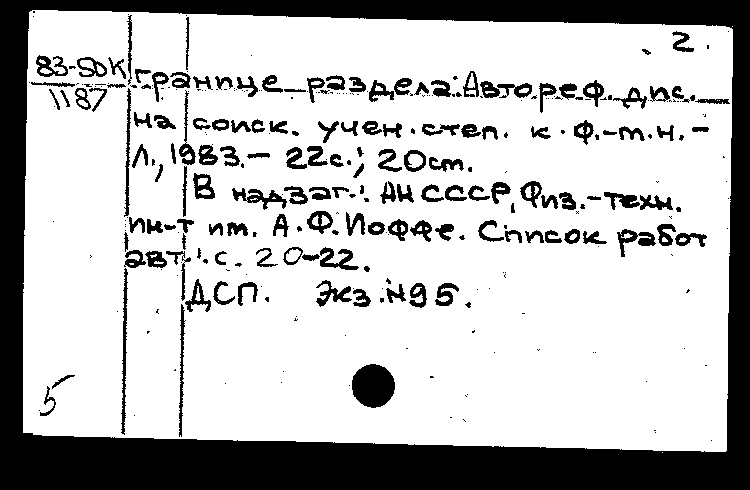 2.
83-5DK
1187
границе раздела: Автореф. дис.
на соиск. учен. степ. к. ф.-м.н. -
Л., 1983. - 22с.; 20см.
В надзаг.: АН СССР, Физ.-техн.
ин-т им. А.Ф. Иоффе. Список работ
авт.: с. 20-22.
ДСП. Экз. №95.
5